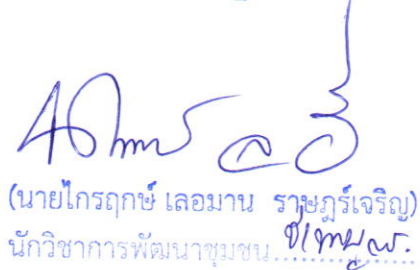 (นายไกรฤกษ์ เลอมาน ราษฎร์เจริญ)
นักวิชาการพัฒนาชุมชน